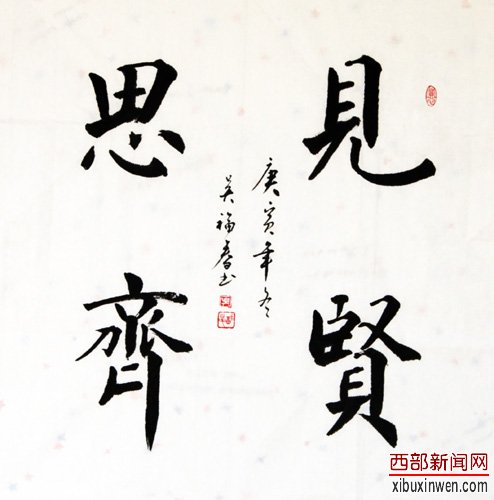 見賢
思齊
庚寅年冬
吴福春书
西部新闻网
xibuxinwen.com